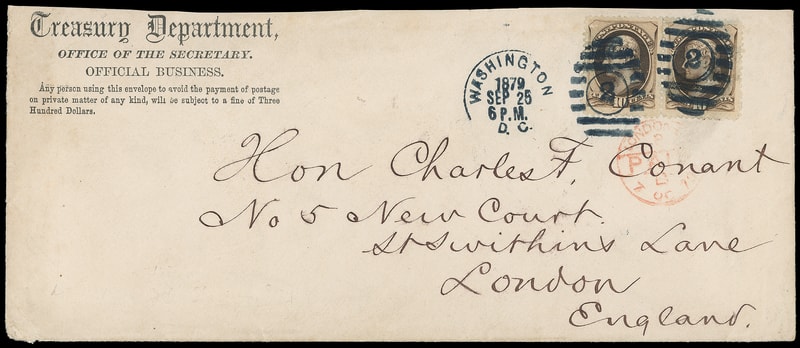 Treasury Department,
OFFICE OF THE SECRETARY.
OFFICIAL BUSINESS.
Any person using this envelope to avoid the payment of postage
on private matter of any kind, will be subject to a fine of Three
Hundred Dollars.
WASHINGTON
1879
SEP 25
6 P.M.
D. C.
2
2
Hon Charles F. Conant
No 5 New Court.
St Swithin's Lane
London
England.